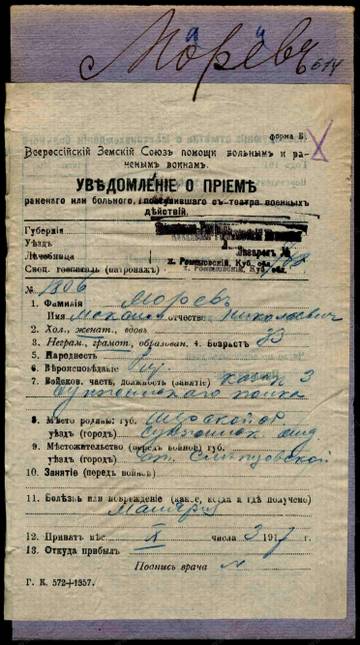 Моревъ 614
форма Б.
Всероссійскій Земскій Союзъ помощи больнымъ и ра-
ненымъ воинамъ.
УВѢДОМЛЕНІЕ О ПРІЕМѢ
раненаго или больного, поступившаго съ театра военныхъ
дѣйствій.
Губернія
Уѣздъ
Лечебница
Лазаретъ
х. Романовскій, Куб. обл.
Спец. госпиталь (патронажъ)
х. Романовскій, Куб. обл.
№ 1306
1. Фамилія Моревъ
Имя Михаилъ отчество Николаевич
2. Хол., женат., вдовъ
3. Неграм., грамот., образован. 4. Возрастъ 33
5. Народность
6. Вѣроисповѣданіе
7. Войсков. часть, должность (занятіе) казак 3
Сунженскаго полка
8. Мѣсто родины: губ. Терской об
уѣздъ (городъ) Сунженск. отд.
9. Мѣстожительство (передъ войной) губ.
уѣздъ (городъ) ст. Слепцовской
10. Занятіе (передъ войной)
11. Болѣзнь или поврежденіе (какое, когда и гдѣ получено)
Малярія
12. Принятъ мѣс. X числа 3 1917 г.
13. Откуда прибылъ
Подпись врача
Г. К. 572—1357.